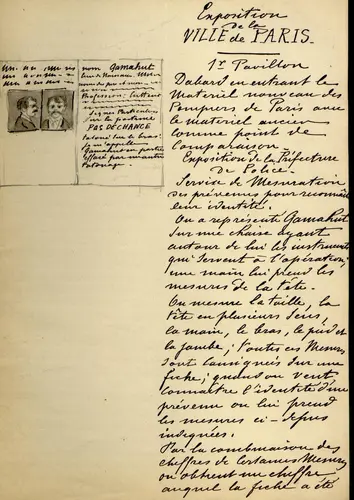 nom Gamahut
PAS DE CHANCE
Exposition
de la
VILLE de PARIS.
1er Pavillon
Dabard en entrant le
Materiel nouveau des
Pompiers de Paris avec
le materiel ancien
comme point de
Comparaison.
Exposition de la Préfecture
de Police.
Service de Mesuration
des prévenus pour reconnaître
leur identité.
On a représenté Gamahut
sur une chaise ayant
autour de lui les instruments
qui servent à l'opération,
une main lui prend les
mesures de la tête.
On mesure la taille, la
tête en plusieurs sens,
la main, le bras, le pied et
la jambe; toutes ces Mesures
sont consignées sur une
fiche; quand on veut
connaître l'identité d'un
prévenu on lui prend
les mesures ci-dessus
indiquées.
Par la combinaison des
chiffres de certaines Mesures
on obtient un chiffre
auquel la fiche a été